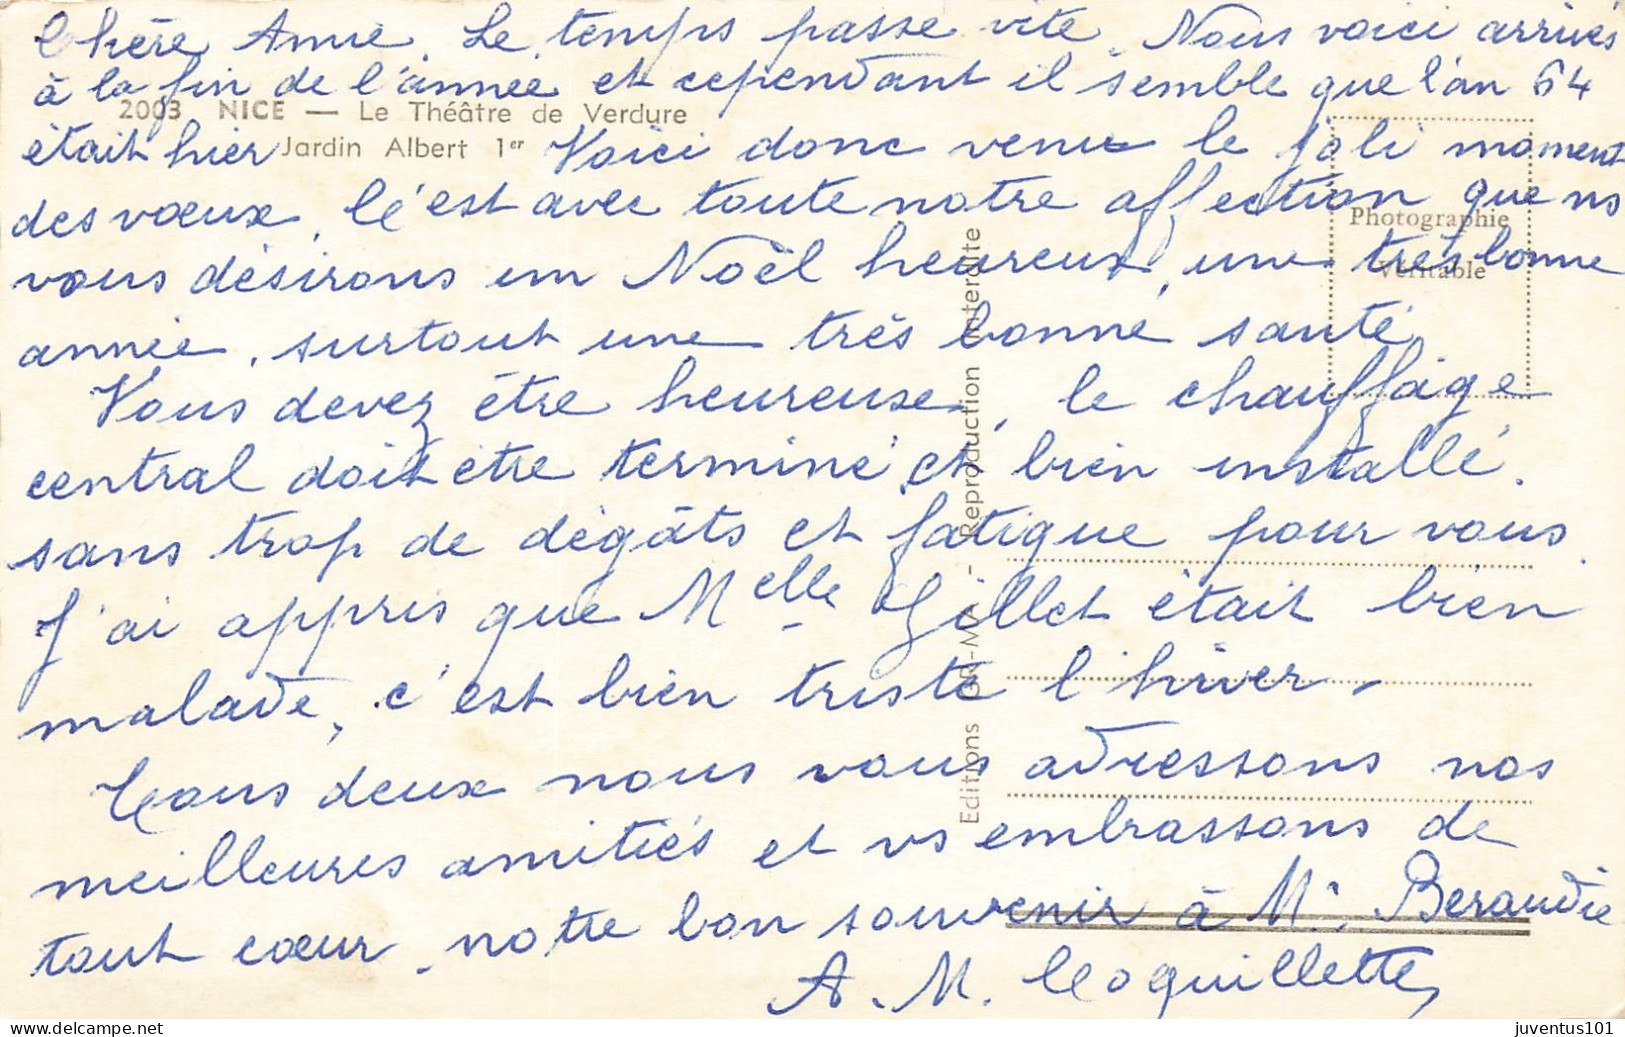 Chère Anne. Le temps passe vite. Nous voici arrivés
à la fin de l'année et cependant il semble que l'an 64
2003 NICE — Le Théâtre de Verdure
était hier
Jardin Albert 1er
Voici donc venu le joli moment
des vœux, c'est avec toute notre affection que ns
Photographie
vous désirons un Noël heureux, une très bonne
Véritable
année, surtout une très bonne santé.
Vous devez être heureuse, le chauffage
central doit être terminé et bien installé.
sans trop de dégâts et fatigue pour vous.
J'ai appris que Melle Gillet était bien
malade, c'est bien triste l'hiver.
Tous deux nous vous adressons nos
meilleures amitiés et vs embrassons de
tout cœur, notre bon souvenir à M. Beraudie
A. M. Coquillette
Reproduction interdite
juventus101